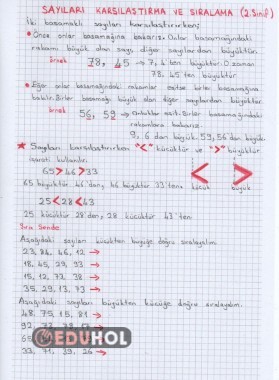 SAYILARI KARŞILAŞTIRMA VE SIRALAMA (2.Sınıf)
İki basamaklı sayıları karşılaştırırken;
• Önce onlar basamağına bakarız. Onlar basamağındaki
rakamı büyük olan sayı, diğer sayılardan büyüktür.
Örnek 78, 45 → 7, 4 ten büyüktür. O zaman
78, 45 ten büyüktür
• Eğer onlar basamağındaki rakamlar eşitse birler basamağına
bakılır. Birler basamağı büyük olan diğer sayılardan büyüktür.
Örnek 56, 59 → Onluklar eşit. Birler basamağındaki
rakamlara bakarız.
9, 6 dan büyük. 59, 56 dan büyük
★ Sayıları karşılaştırırken "<" küçüktür ve ">" büyüktür
işareti kullanılır.
65 > 46 > 33
65 büyüktür 46 dan, 46 büyüktür 33 ten
< >
küçük büyük
25 < 28 < 43
25 küçüktür 28 den, 28 küçüktür 43 ten
Sıra Sende
Aşağıdaki sayıları küçükten büyüğe doğru sıralayalım.
23, 84, 46, 12 →
18, 45, 29, 93 →
15, 12, 77, 38 →
35, 29, 13, 73 →
Aşağıdaki sayıları büyükten küçüğe doğru sıralayalım.
48, 75, 15, 81 →
92,
EDUHOL
33, 71, 39, 26 →